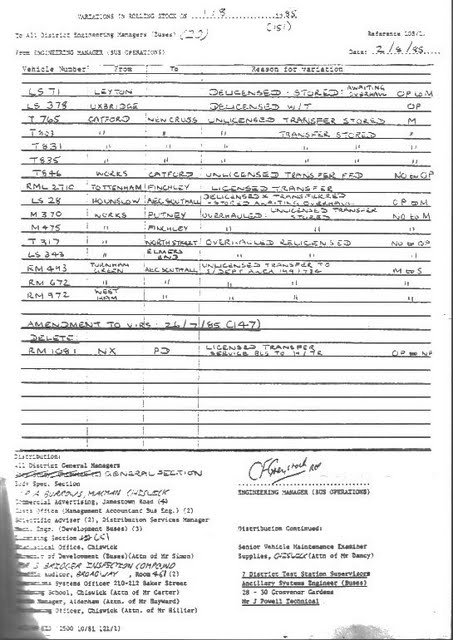 VARIATIONS IN ROLLING STOCK ON 1/8 1985
(151)
To All District Engineering Managers (Buses) (22) Reference 105/1.
From ENGINEERING MANAGER (BUS OPERATIONS) Date: 2/8/85
Vehicle Number From To Reason for variation
LS 71 LEYTON DELICENSED - STORED: AWAITING OVERHAUL OP to M
LS 378 UXBRIDGE DELICENSED W/T OP
T 765 CATFORD NEW CROSS UNLICENSED TRANSFER STORED M
" " " TRANSFER STORED "
T831 " " "
T835 " " "
T846 WORKS CATFORD UNLICENSED TRANSFER FFD NO to OP
RML 2710 TOTTENHAM FINCHLEY LICENSED TRANSFER
LS 28 HOUNSLOW AEC SOUTHALL DELICENSED & TRANSFERRED - STORED AWAITING OVERHAUL OP to M
M 370 WORKS PUTNEY OVERHAULED. UNLICENSED TRANSFER STORED NO to M
M 475 " FINCHLEY " " "
T 317 " NORTH STREET OVERHAULED RELICENSED NO to OP
LS 343 " ELMERS END " " "
RM 493 TURNHAM GREEN AEC SOUTHALL UNLICENSED TRANSFER TO M to S
RM 672 " " " "
RM 972 WEST HAM " " " "
AMENDMENT TO V.I.R.S: 26/7/85 (147)
DELETE
RM 1081 NX PD LICENSED TRANSFER
Distribution:
All District General Managers
GENERAL SECTION
Body Spec. Section
ENGINEERING MANAGER (BUS OPERATIONS)
Commercial Advertising, Jamestown Road (4)
Costs Office (Management Accountant Bus Eng.) (2)
Scientific Adviser (2), Distribution Services Manager
Engr. (Development Buses) (3) Distribution Continued:
Licensing Section
Statistical Office, Chiswick Senior Vehicle Maintenance Examiner
of Development (Buses)(Attn of Mr Simon) Supplies, CHISWICK (Attn of Mr Dancy)
BRIDGER INSPECTION COMPOUND
Auditor, BROADWAY, Room 467 (2) 7 District Test Station Supervisors
Systems Officer 210-212 Baker Street Ancillary Systems Engineer (Buses)
School, Chiswick (Attn of Mr Carter) 28 - 30 Grosvenor Gardens
Manager, Aldenham (Attn of Mr Hayward) Mr J Powell Technical
Officer, Chiswick (Attn of Mr Hillier)
2500 10/81 (21/1)